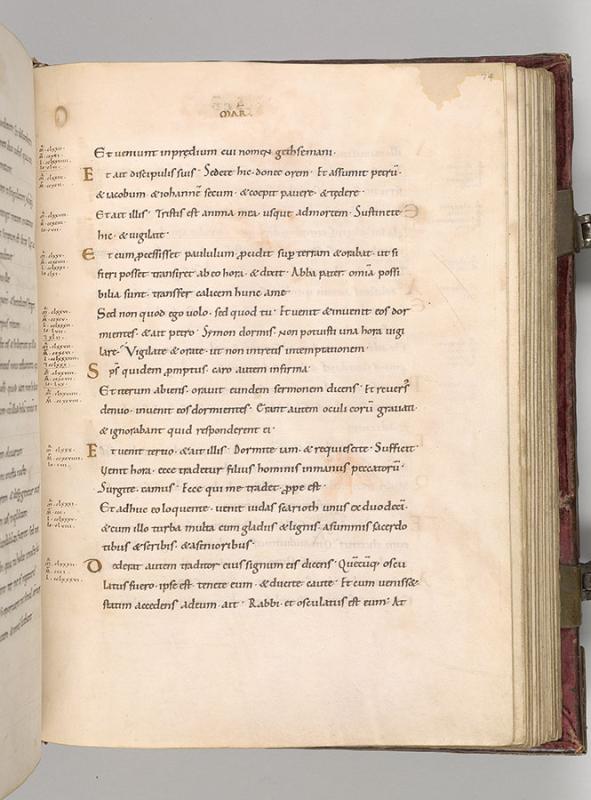 74
MAR̄
Et ueniunt inpredium cui nomen gethsemani·
Et ait discipulis suis· Sedete hic· donec orem· Et assumit petrū·
& iacobum & iohannē secum· & coepit pauere· & tedere·
Et ait illis· Tristis est anima mea· usque admortem· Sustinete
hic· & uigilate·
Et cum processisset paululum, procidit super terram & orabat· ut si
fieri posset transiret ab eo hora· & dixit· Abba pater omīa possi
bilia sunt· transfer calicem hunc ame·
Sed non quod ego uolo· sed quod tu· Et uenit & inuenit eos dor
mientes· & ait petro· Symon dormis· Non potuisti una hora uigi
lare· Vigilate & orate· ut non intretis intemptationem·
Sp̄s quidem promptus· caro autem infirma·
Et iterum abiens· orauit eundem sermonem dicens· Et reuersˢ
denuo· inuenit eos dormientes· Erant autem oculi eorū grauati·
& ignorabant quid responderent ei·
Et uenit tertio· & ait illis· Dormite iam· & requiescite· Sufficit·
Venit hora· ecce tradetur filius hominis inmanus peccatorū·
Surgite· eamus· Ecce qui me tradet· prope est·
Et adhuc eo loquente· uenit iudas scarioth unus ex duodecī·
& cum illo turba multa cum gladiis & lignis· asummis sacerdo
tibus & scribis· & asenioribus·
Dederat autem traditor eius signum eis dicens· Quēcūque oscu
latus fuero· ipse est· tenete eum· & ducite caute· Et cum uenisset
statim accedens adeum· ait· Rabbi· et osculatus est eum· At